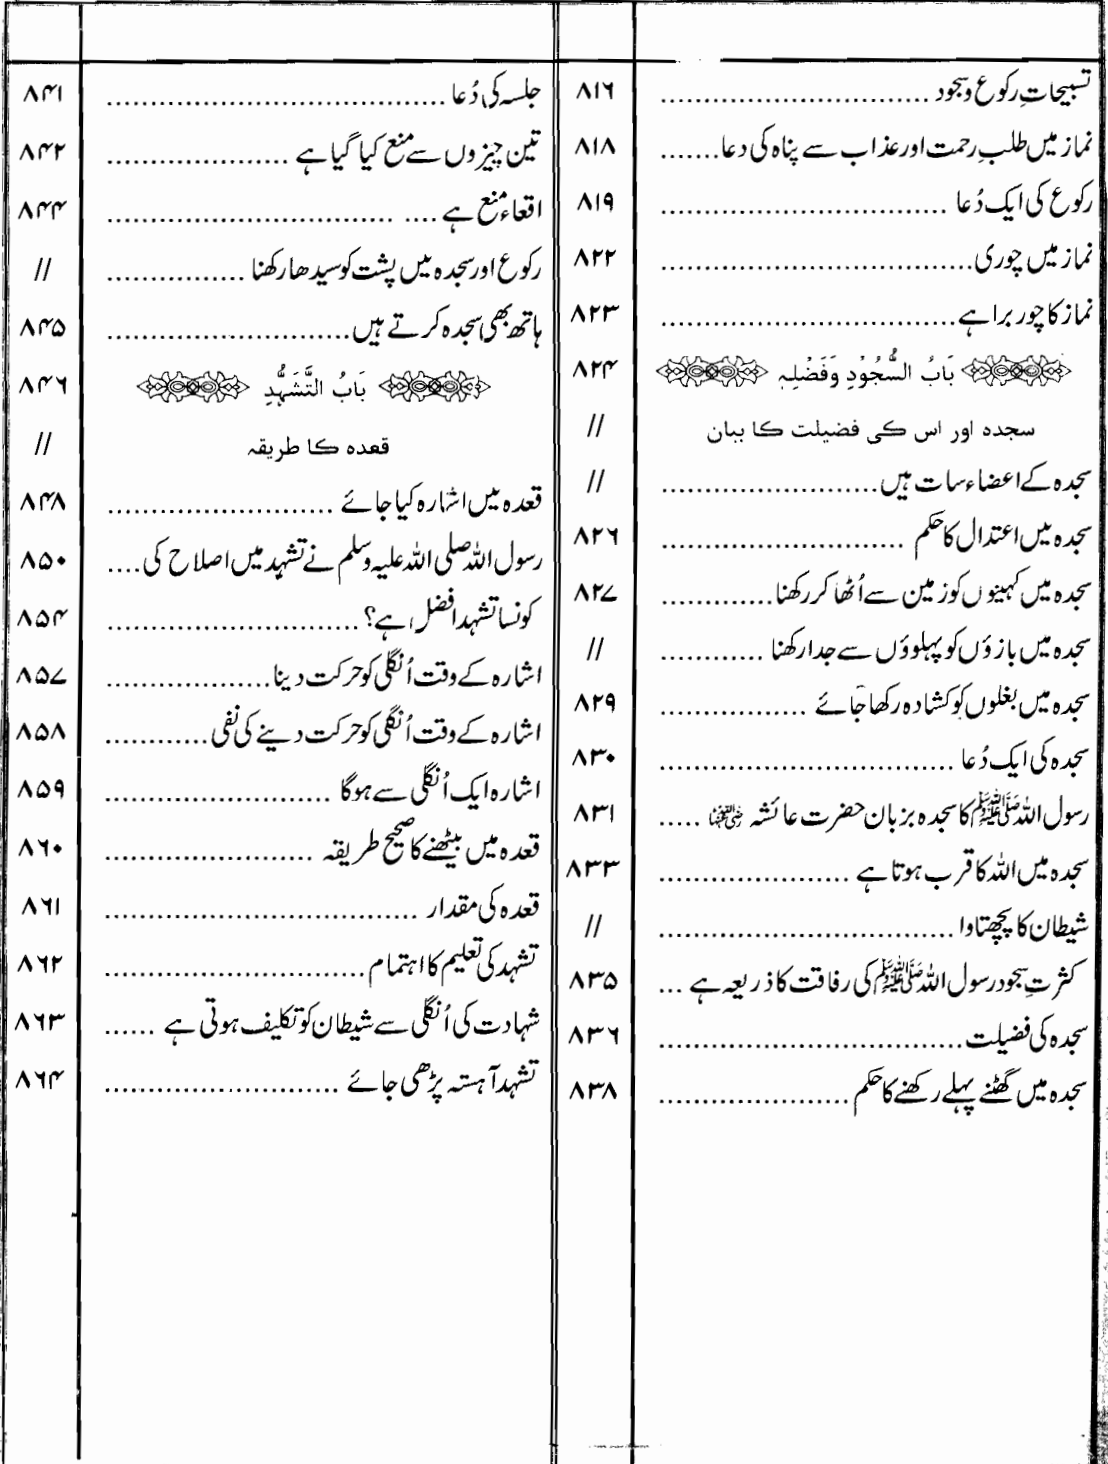 تسبیحاتِ رکوع وسجود ............................... ۸۱۶
نماز میں طلبِ رحمت اور عذاب سے پناہ کی دعا....... ۸۱۸
رکوع کی ایک دُعا ................................. ۸۱۹
نماز میں چوری.................................... ۸۲۲
نماز کا چور برا ہے.................................. ۸۲۳
بَابُ السُّجُوْدِ وَفَضْلِہٖ ۸۲۴
سجدہ اور اس کی فضیلت کا بیان //
سجدہ کے اعضاء سات ہیں......................... //
سجدہ میں اعتدال کا حکم ............................ ۸۲۶
سجدہ میں کہنیوں کو زمین سے اُٹھا کر رکھنا............. ۸۲۷
سجدہ میں بازؤں کو پہلوؤں سے جدا رکھنا ............ //
سجدہ میں بغلوں کو کشادہ رکھا جائے ................. ۸۲۹
سجدہ کی ایک دُعا .................................. ۸۳۰
رسول اللہ ﷺ کا سجدہ بزبان حضرت عائشہ رضی اللہ عنہا ..... ۸۳۱
سجدہ میں اللہ کا قرب ہوتا ہے ...................... ۸۳۳
شیطان کا پچھتاوا.................................. //
کثرتِ سجود رسول اللہ ﷺ کی رفاقت کا ذریعہ ہے ... ۸۳۵
سجدہ کی فضیلت................................... ۸۳۶
سجدہ میں گھٹنے پہلے رکھنے کا حکم ...................... ۸۳۸
جلسہ کی دُعا ....................................... ۸۴۱
تین چیزوں سے منع کیا گیا ہے ..................... ۸۴۲
اقعاء منع ہے .... ................................. ۸۴۴
رکوع اور سجدہ میں پشت کو سیدھا رکھنا ................ //
ہاتھ بھی سجدہ کرتے ہیں............................ ۸۴۵
بَابُ التَّشَہُّدِ ۸۴۶
قعدہ کا طریقہ //
قعدہ میں اشارہ کیا جائے .......................... ۸۴۸
رسول اللہ صلی اللہ علیہ وسلم نے تشہد میں اصلاح کی .... ۸۵۰
کونسا تشہد افضل ہے؟............................. ۸۵۴
اشارہ کے وقت اُنگلی کو حرکت دینا................... ۸۵۷
اشارہ کے وقت اُنگلی کو حرکت دینے کی نفی............ ۸۵۸
اشارہ ایک اُنگلی سے ہوگا .......................... ۸۵۹
قعدہ میں بیٹھنے کا صحیح طریقہ ........................ ۸۶۰
قعدہ کی مقدار .................................... ۸۶۱
تشہد کی تعلیم کا اہتمام .............................. ۸۶۲
شہادت کی اُنگلی سے شیطان کو تکلیف ہوتی ہے ...... ۸۶۳
تشہد آہستہ پڑھی جائے ........................... ۸۶۴